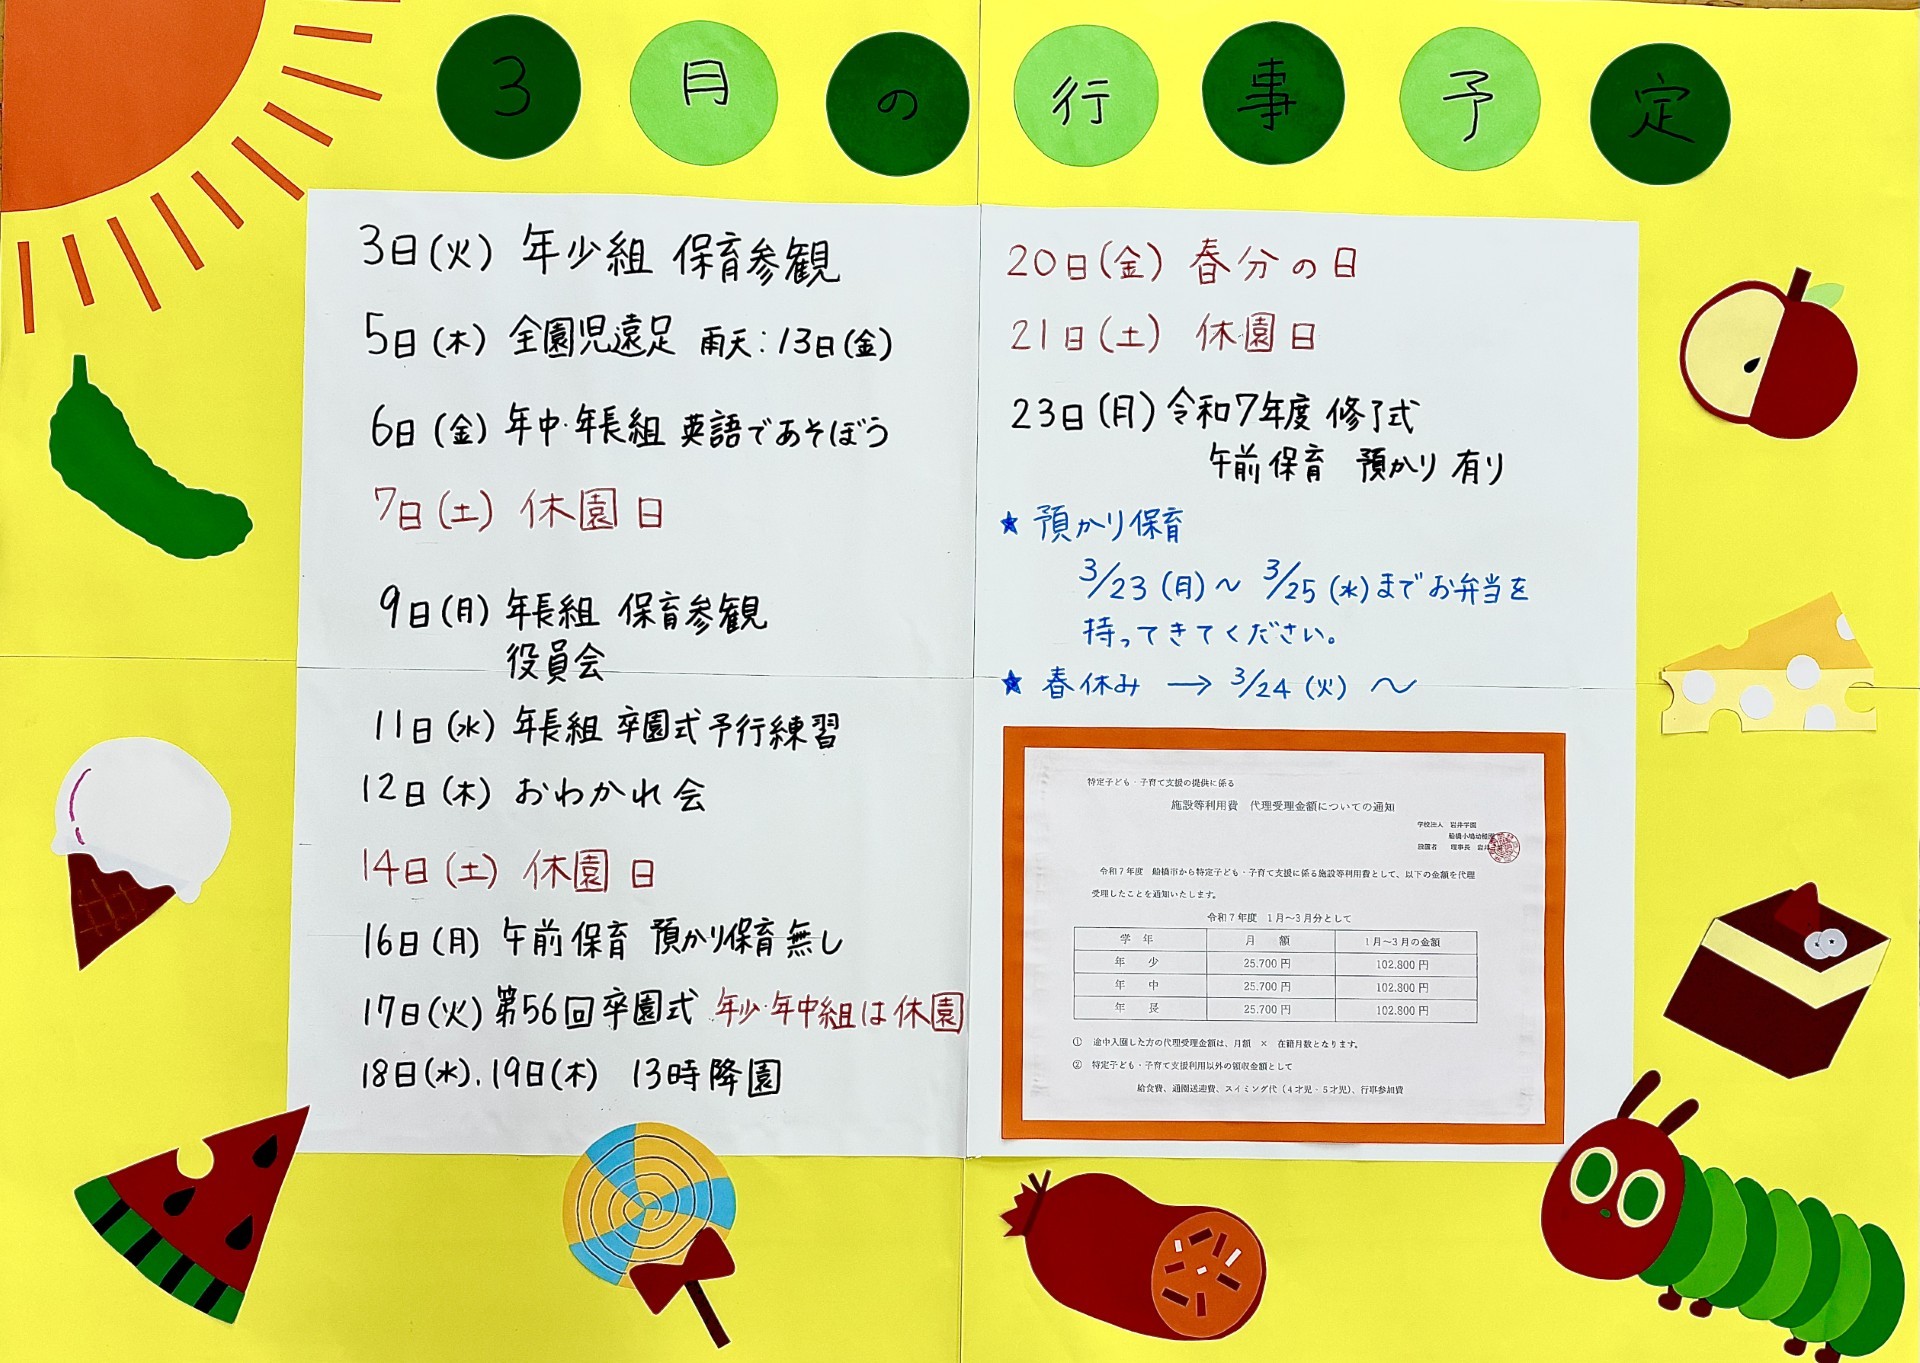 3月の行事予定
3日(火) 年少組 保育参観
5日(木) 全園児遠足 雨天：13日(金)
6日(金) 年中・年長組 英語であそぼう
7日(土) 休園日
9日(月) 年長組 保育参観
役員会
11日(水) 年長組 卒園式予行練習
12日(木) おわかれ会
14日(土) 休園日
16日(月) 午前保育 預かり保育無し
17日(火) 第56回卒園式 年少・年中組は休園
18日(水)、19日(木) 13時降園
20日(金) 春分の日
21日(土) 休園日
23日(月) 令和7年度 修了式
午前保育 預かり有り
★ 預かり保育
3/23(月)～3/25(水)までお弁当を
持ってきてください。
★ 春休み → 3/24(火)～
特定子ども・子育て支援の提供に係る
施設等利用費 代理受理金額についての通知
学校法人 岩井学園
船橋小鳩幼稚園
設置者 理事長 岩井
令和7年度 船橋市から特定子ども・子育て支援に係る施設等利用費として、以下の金額を代理
受理したことを通知いたします。
令和7年度 1月～3月分として
学年 月額 1月～3月の金額
年少 25.700円 102.800円
年中 25.700円 102.800円
年長 25.700円 102.800円
① 途中入園した方の代理受理金額は、月額 × 在籍月数となります。
② 特定子ども・子育て支援利用以外の領収金額として
給食費、通園送迎費、スイミング代（4才児・5才児）、行事参加費